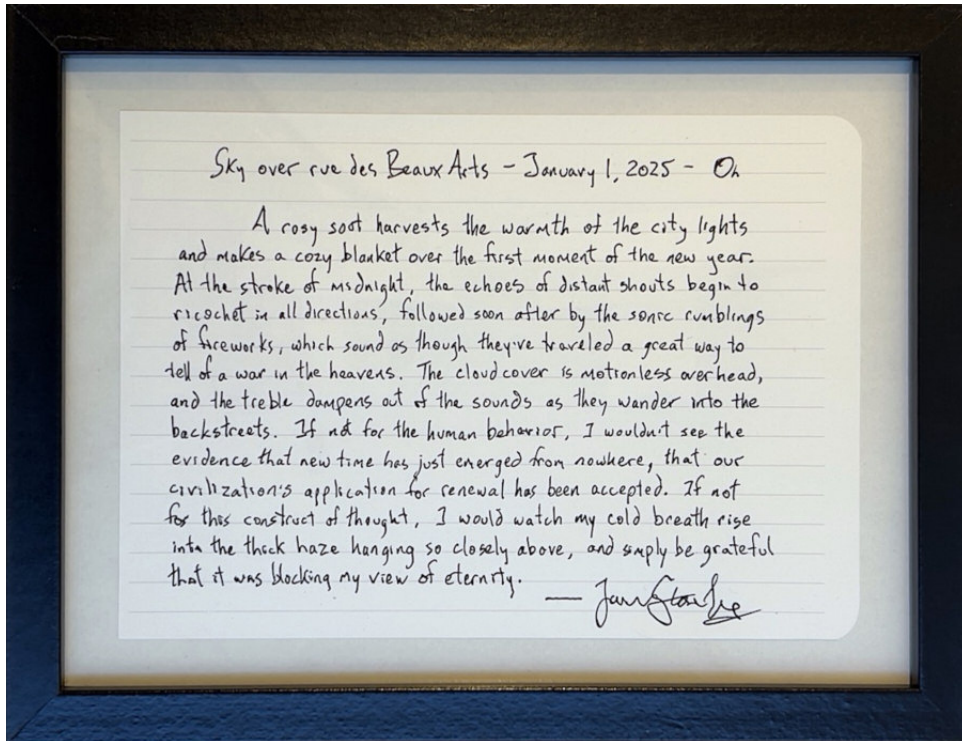 Sky over rue des Beaux Arts – January 1, 2025 – 0h
A rosy soot harvests the warmth of the city lights
and makes a cozy blanket over the first moment of the new year.
At the stroke of midnight, the echoes of distant shouts begin to
ricochet in all directions, followed soon after by the sonic rumblings
of fireworks, which sound as though they've traveled a great way to
tell of a war in the heavens. The cloud cover is motionless overhead,
and the treble dampens out of the sounds as they wander into the
backstreets. If not for the human behavior, I wouldn't see the
evidence that new time has just emerged from nowhere, that our
civilization's application for renewal has been accepted. If not
for this construct of thought, I would watch my cold breath rise
into the thick haze hanging so closely above, and simply be grateful
that it was blocking my view of eternity.